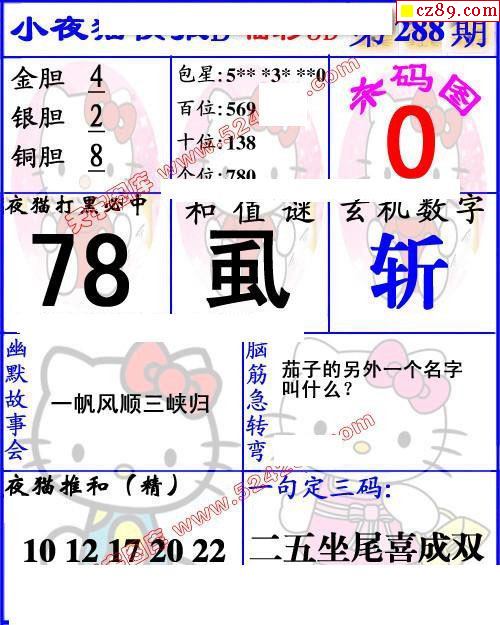 cz89.com
小夜猫
第 288 期
金胆 4
银胆 2
铜胆 8
包星:5** *3* **0
百位:569
十位:138
个位:780
杀码图
0
夜猫打黑必中
78
和值谜
虱
玄机数字
斩
幽默故事会
一帆风顺三峡归
脑筋急转弯
茄子的另外一个名字
叫什么?
夜猫推和(精)
10 12 17 20 22
一句定三码:
二五坐尾喜成双